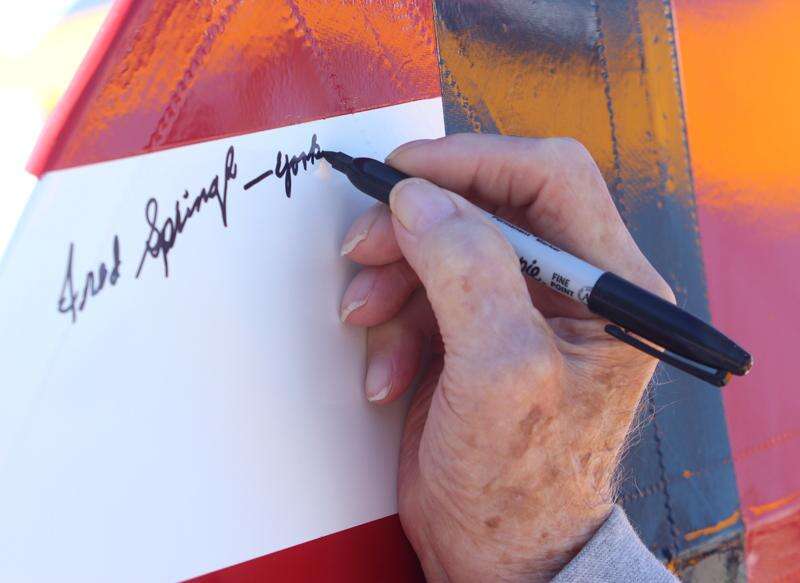 Fred Springl - York
pie.
FINE
POINT